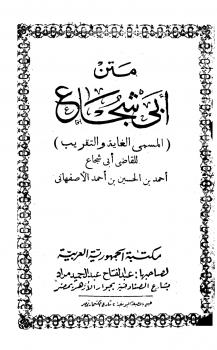 متن
أبي شجاع
(المسمى الغاية والتقريب)
للقاضي أبي شجاع
أحمد بن الحسين بن أحمد الأصفهاني
مكتبة الجمهورية العربية
لصاحبها: عبد الفتاح عبد الحميد مراد
بشارع الصنادقية بجوار الأزهر بمصر